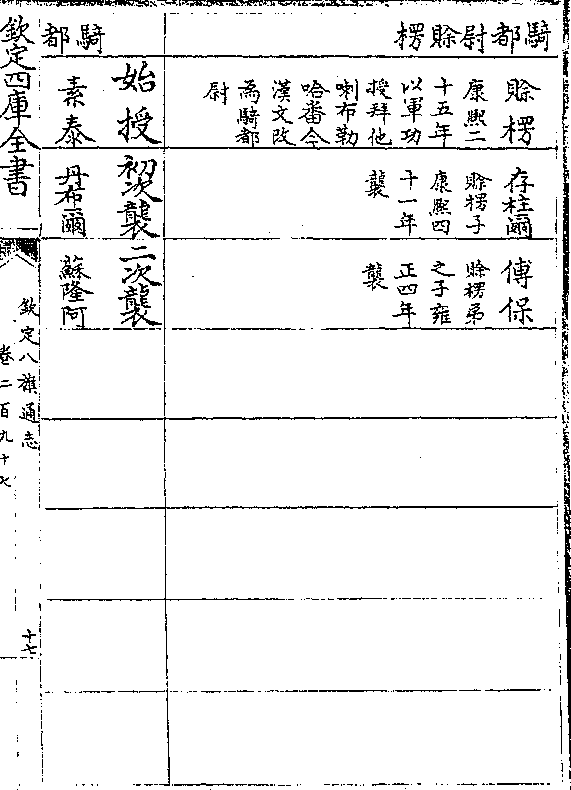 騎都尉賒楞
賒楞
康熙二
十五年
以軍功
授拜他
喇布勒
哈番今
漢文改
為騎都
尉
存柱爾
賒楞子
康熙四
十一年
襲
傅保
賒楞弟
之子雍
正四年
襲
始授
初次襲
二次襲
騎都
素泰
丹布爾
蘇隆阿
欽定四庫全書
欽定八旗通志
卷二百九十七
十七